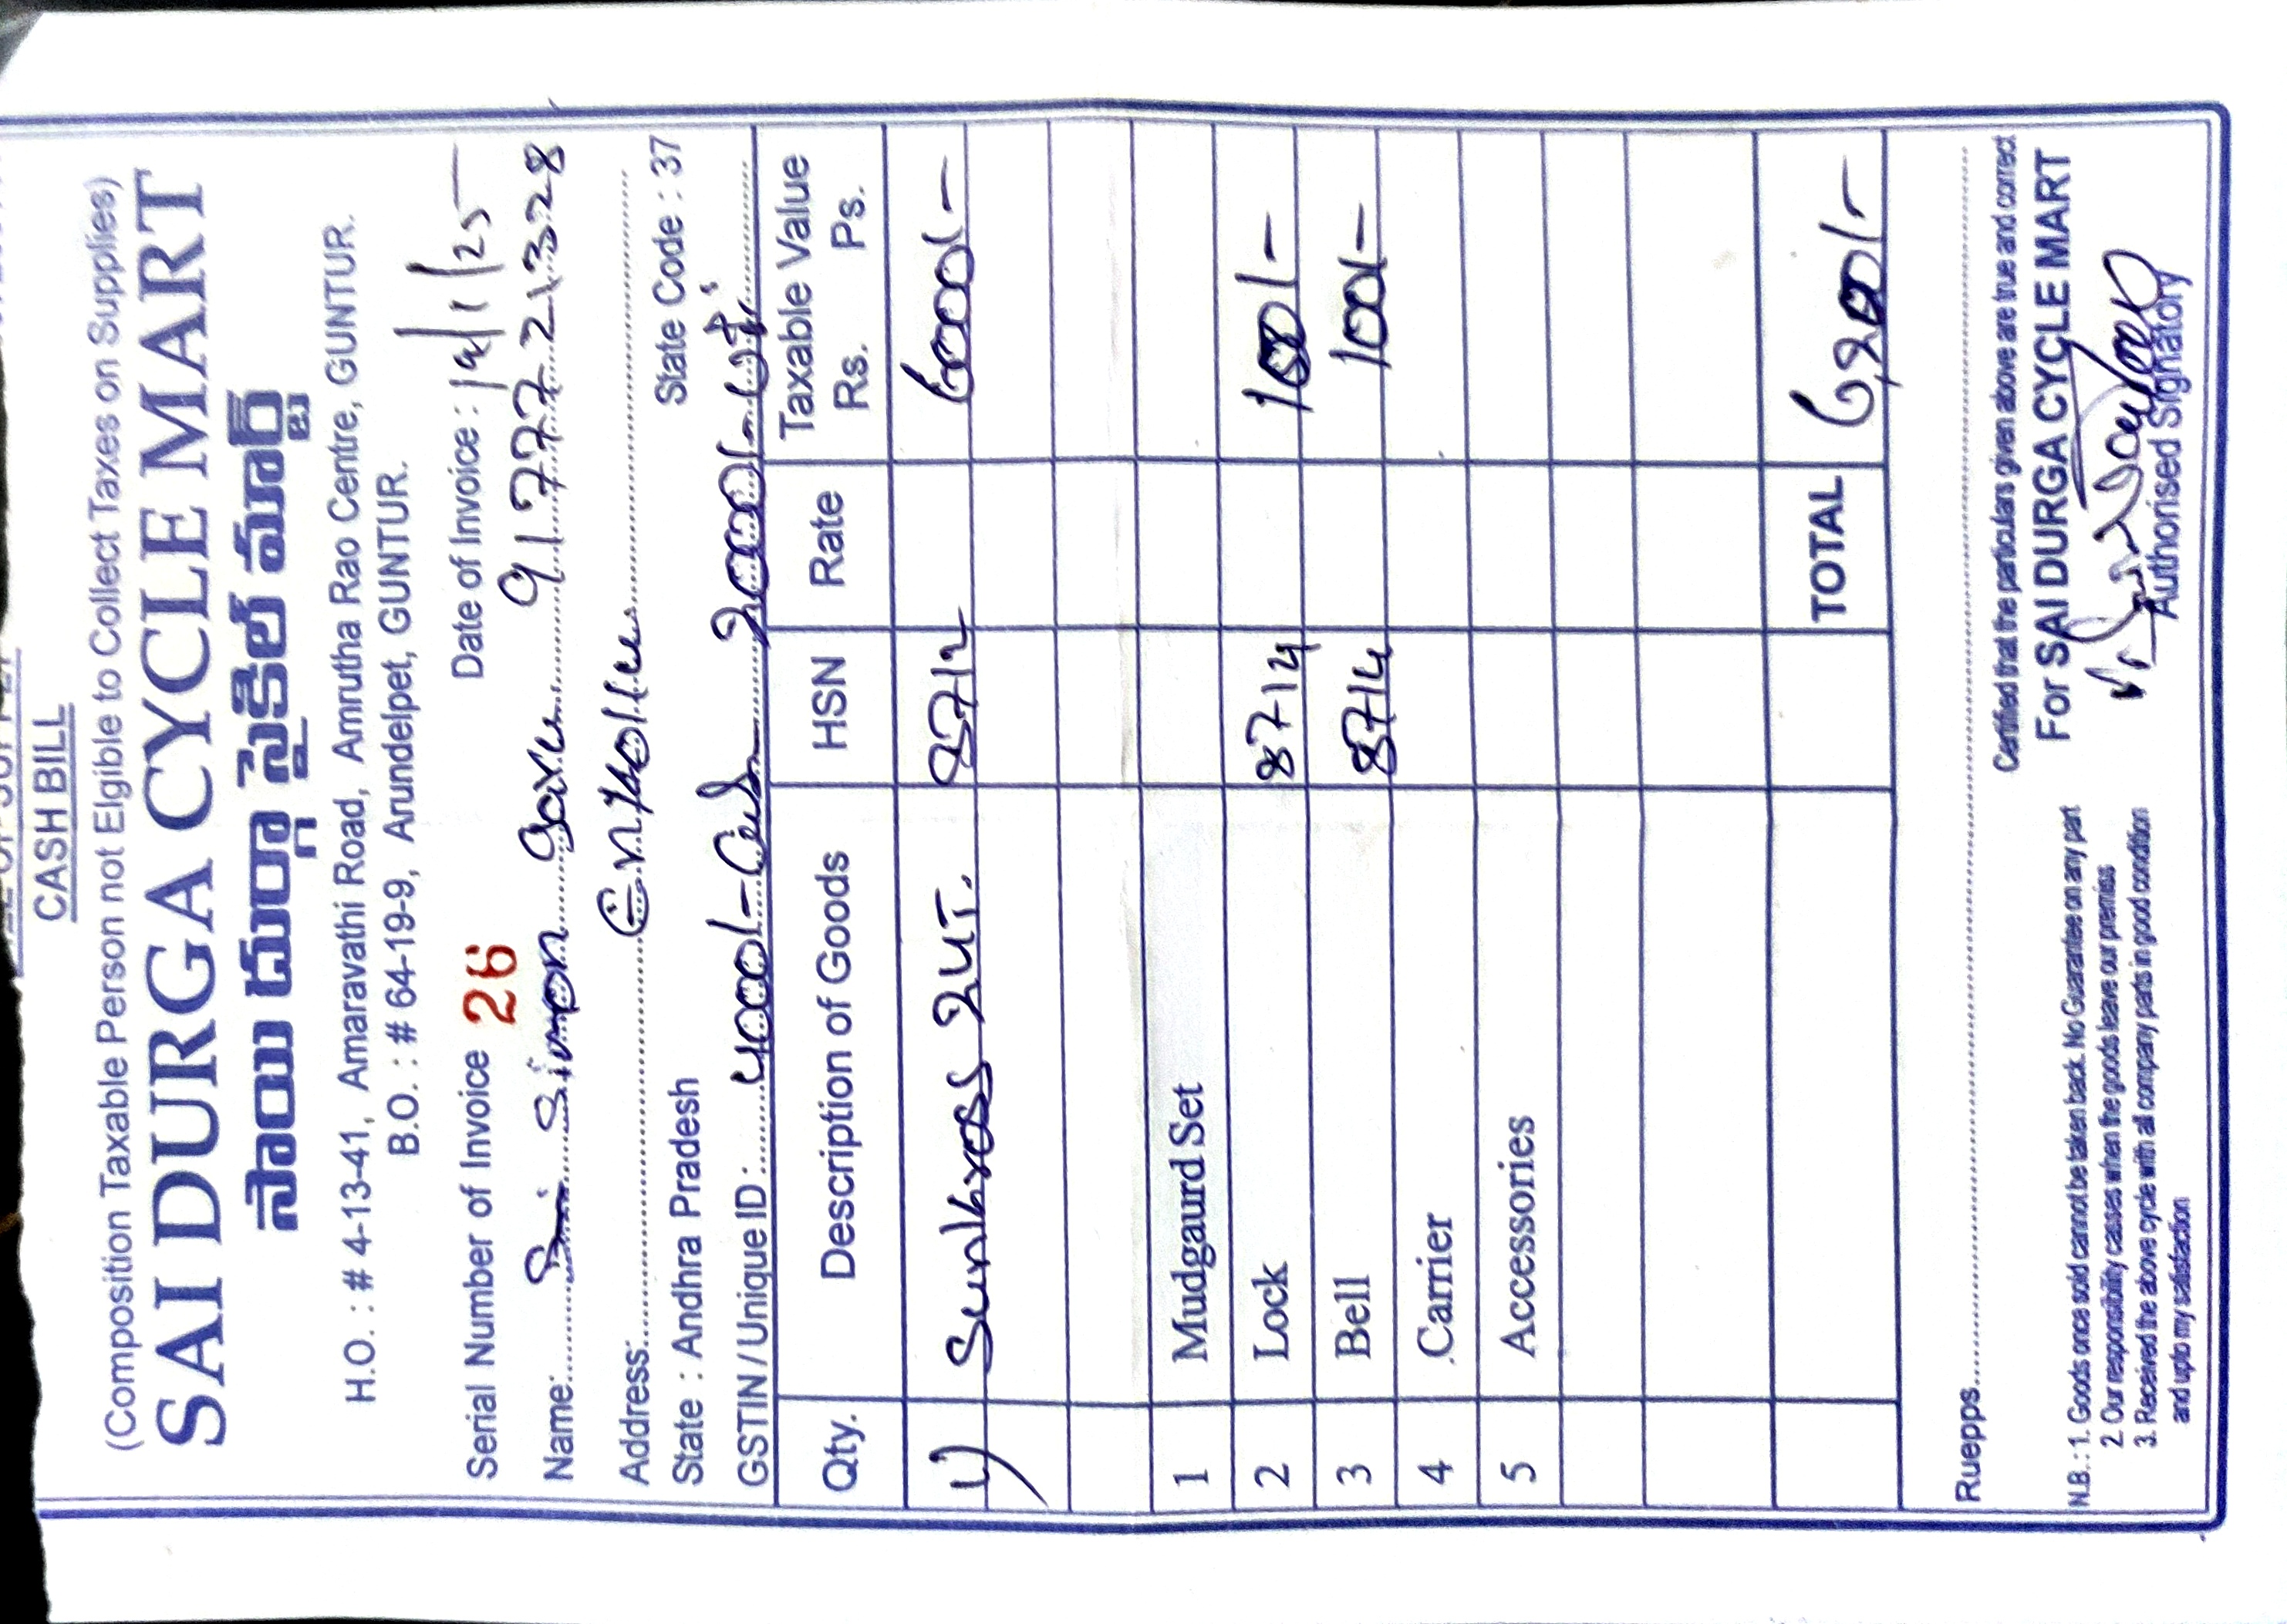 CASH BILL
(Composition Taxable Person not Elgible to Collect Taxes on Supplies)
SAI DURGA CYCLE MART
సాయి దుర్గా సైకిల్ మార్ట్
H.O. : # 4-13-41, Amaravathi Road, Amrutha Rao Centre, GUNTUR.
B.O. : # 64-19-9, Arundelpet, GUNTUR.
Serial Number of Invoice 26 Date of Invoice : 19/1/25
Name: Simon garu 9177721328
Address:
State : Andhra Pradesh State Code : 37
GSTIN / Unique ID : 4000/- 2000/-
Qty. Description of Goods HSN Rate Taxable Value
Rs. Ps.
1) Sunkross 24T. 8712 6000/-
1 Mudgaurd Set
2 Lock 8714 100/-
3 Bell 8714 100/-
4 Carrier
5 Accessories
TOTAL 6,200/-
Ruepps
Certified that the particulars given above are true and correct
For SAI DURGA CYCLE MART
Authorised Signatory
N.B. : 1. Goods once sold cannot be taken back. No Guarantee on any part
2. Our responsibility casses when the goods leave our premiss
3. Received the above cycle with all company parts in good condition
and upto my satisfaction